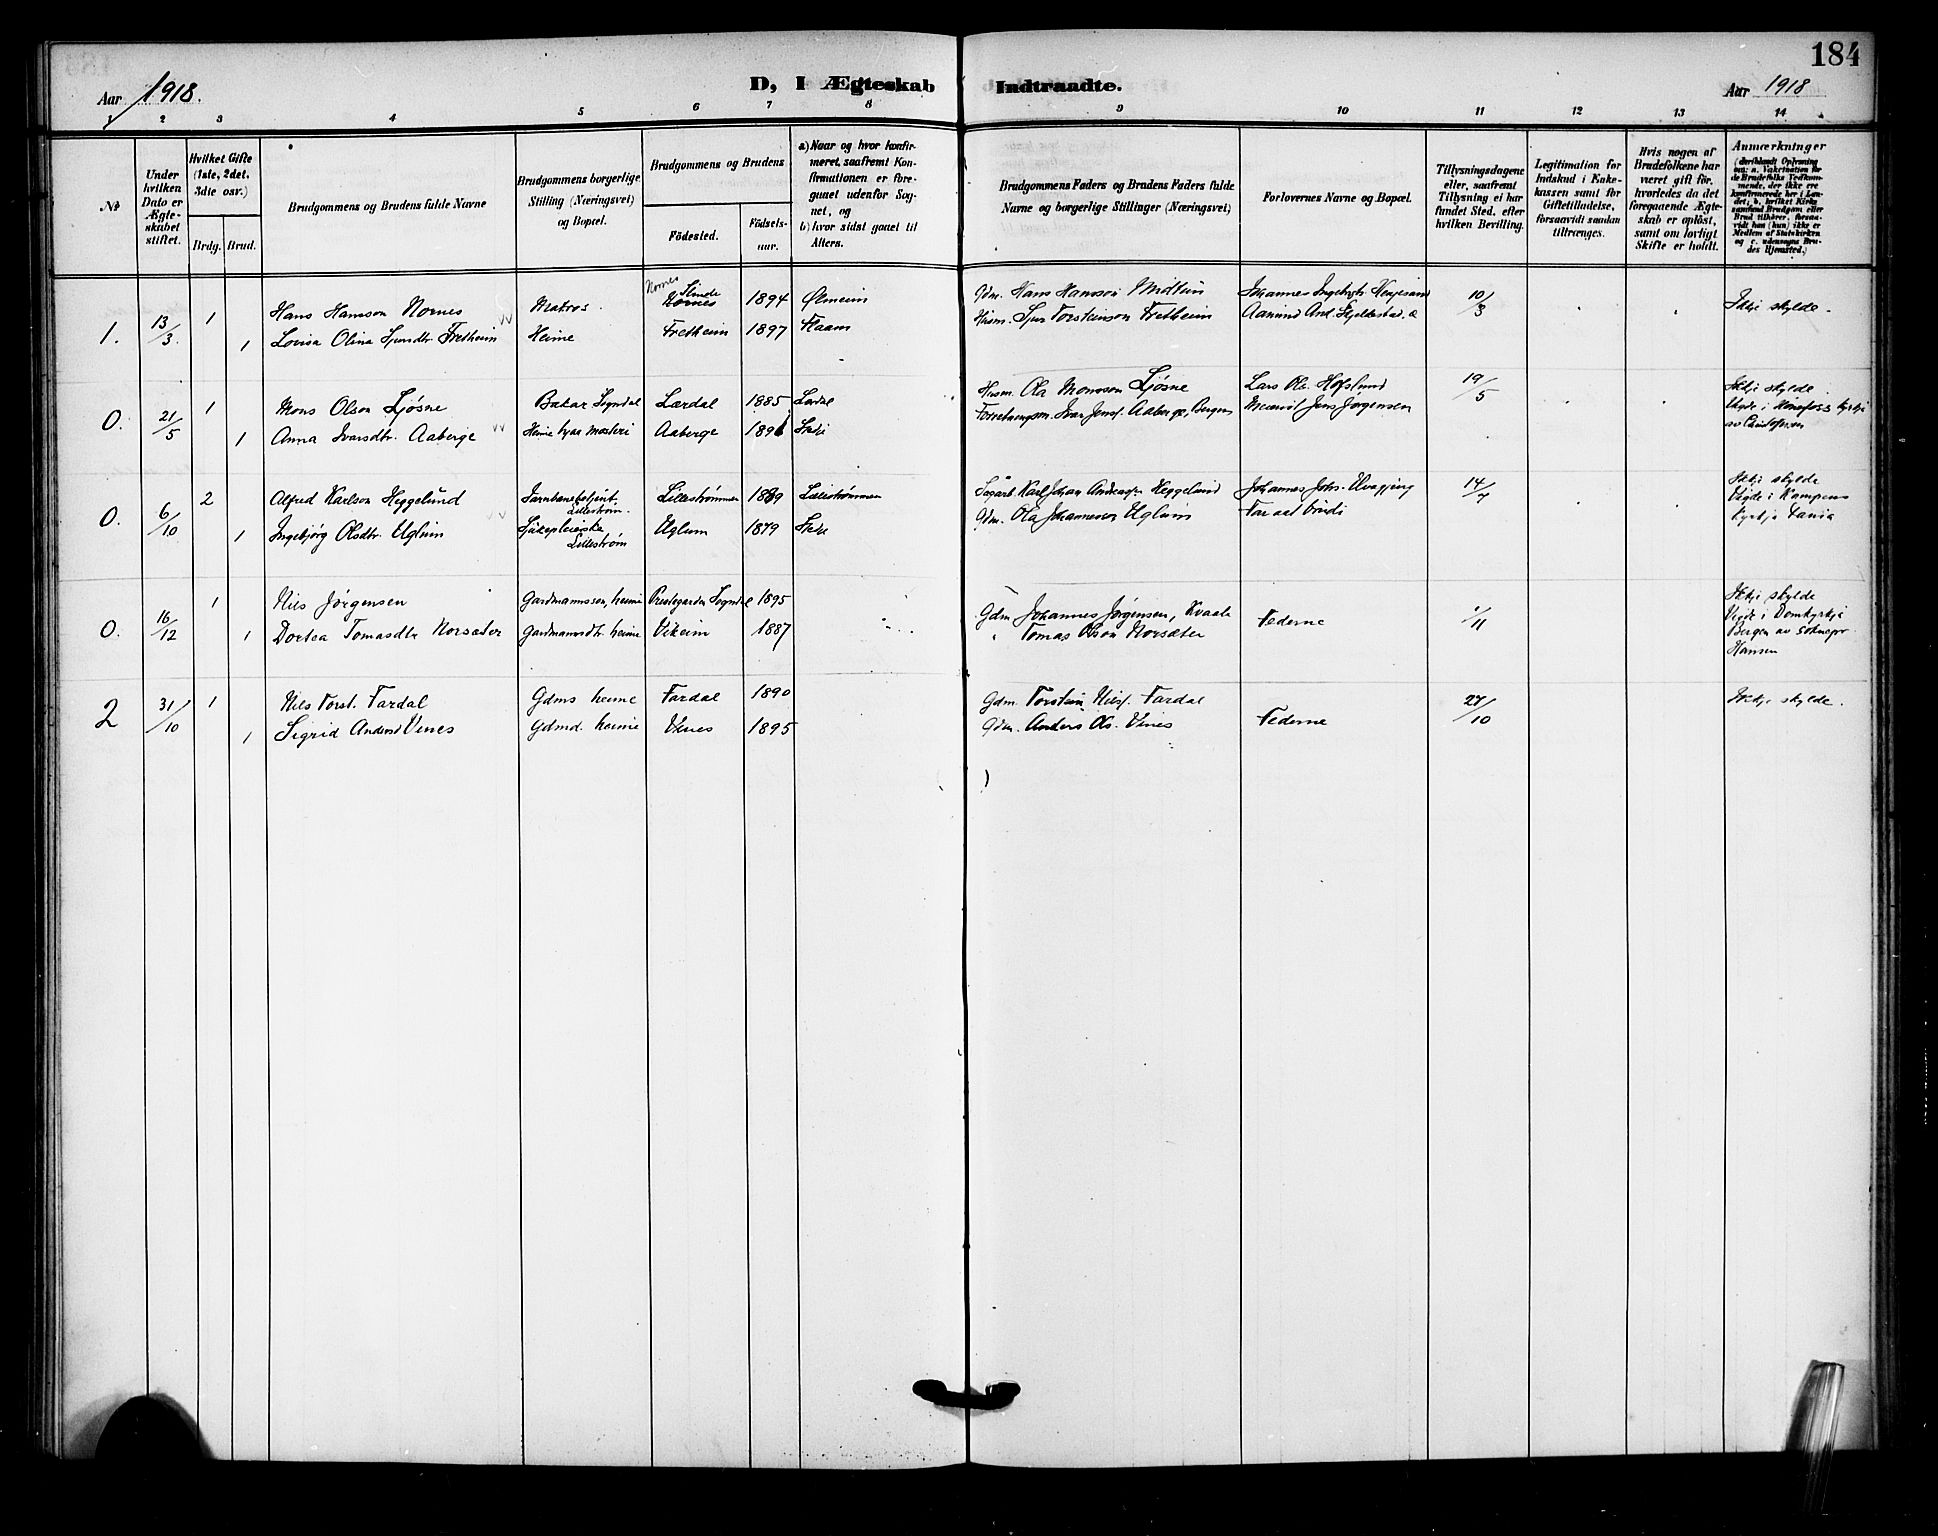 184
Aar 1918.
D, I Ægteskab Indtraadte.
Aar 1918
1 2 3 4 5 6 7 8 9 10 11 12 13 14
№
Under hvilken Dato er Ægteskabet stiftet.
Hvilket Gifte (1ste, 2det, 3die osv.)
Brdg. Brud.
Brudgommens og Brudens fulde Navne
Brudgommens borgerlige Stilling (Næringsvei) og Bopæl.
Brudgommens og Brudens
Födested.
Födselsaar.
a) Naar og hvor konfirmeret, saafremt Konfirmationen er foregaaet udenfor Sognet, og
b) hvor sidst gaaet til Alters.
Brudgommens Faders og Brudens Faders fulde Navne og borgerlige Stillinger (Næringsvei)
Forlovernes Navne og Bopæl.
Tillysningsdagene eller, saafremt Tillysning ei har fundet Sted, efter hvilken Bevilling.
Legitimation for Indskud i Enkekassen samt for Giftetilladelse, forsaavidt saadan tiltrænges.
Hvis nogen af Brudefolkene har været gift för, hvorledes da det foregaaende Ægteskab er oplöst, samt om lovligt Skifte er holdt.
Anmærkninger
Hans Hansson Nornes Matros. Nornes Slinde Nornes 1894 Ølmeim Gdm. Hans Hansson Midtun 10/3 Ikkje skylde.
1. 13/3 1
1 Lovisa Olina Sjursdtr. Fretheim Heime Fretheim 1897 Flaam Husm. Sjur Torsteinson Fretheim
0. 21/5 1 Mons Olson Ljøsne Bakar Sogndal Lærdal 1885 Lærdal Husm. Ola Monsson Ljøsne Lars Ol. Hofslund 19/5 Ikkje skylde
1 Anna Ivarsdtr. Aaberge Heime Aaberge Stedje Ivar Jensf. Aaberge, Bergen Jens Jørgensen Vigde i Hønefoss kyrkje
0. 6/10 2 Alfred Karlson Heggelund Jarnbanebetjent Lillestrøm. Lillestrømmen Lillestrømmen Karl Johan Heggelund Johannes Johs. 14/7 Ikkje skylde
Vigde i Kampens kyrkje
1 Ingebjørg Olsdtr. Uglum Sjukepleierske Lillestrøm Uglum 1879 Stedje Gdm. Ola Johannesson Uglum Far aat brudi
0. 16/12 1 Nils Jørgensen Gardmannsson, heime Prestegarden Sogndal 1895 Gdm Johannes Jørgensen, Kvaale Federne 1/11 Ikkje skylde
Vigde i Domkyrkje
Bergen av soknepr.
Hansen
1 Dortea Tomasdtr Norsæter Gardmannsdtr. heime Vikeim 1887 " Tomas Olson Norsæter
2 31/10 1 Nils Torst. Fardal Gdms heime Fardal 1890 Gdm. Torstein Nilsf. Fardal Federne 27/10 Ikkje skylde.
1 Sigrid Andersd Venes Gdmd. heime Venes 1895 Gdm. Anders Ols. Venes